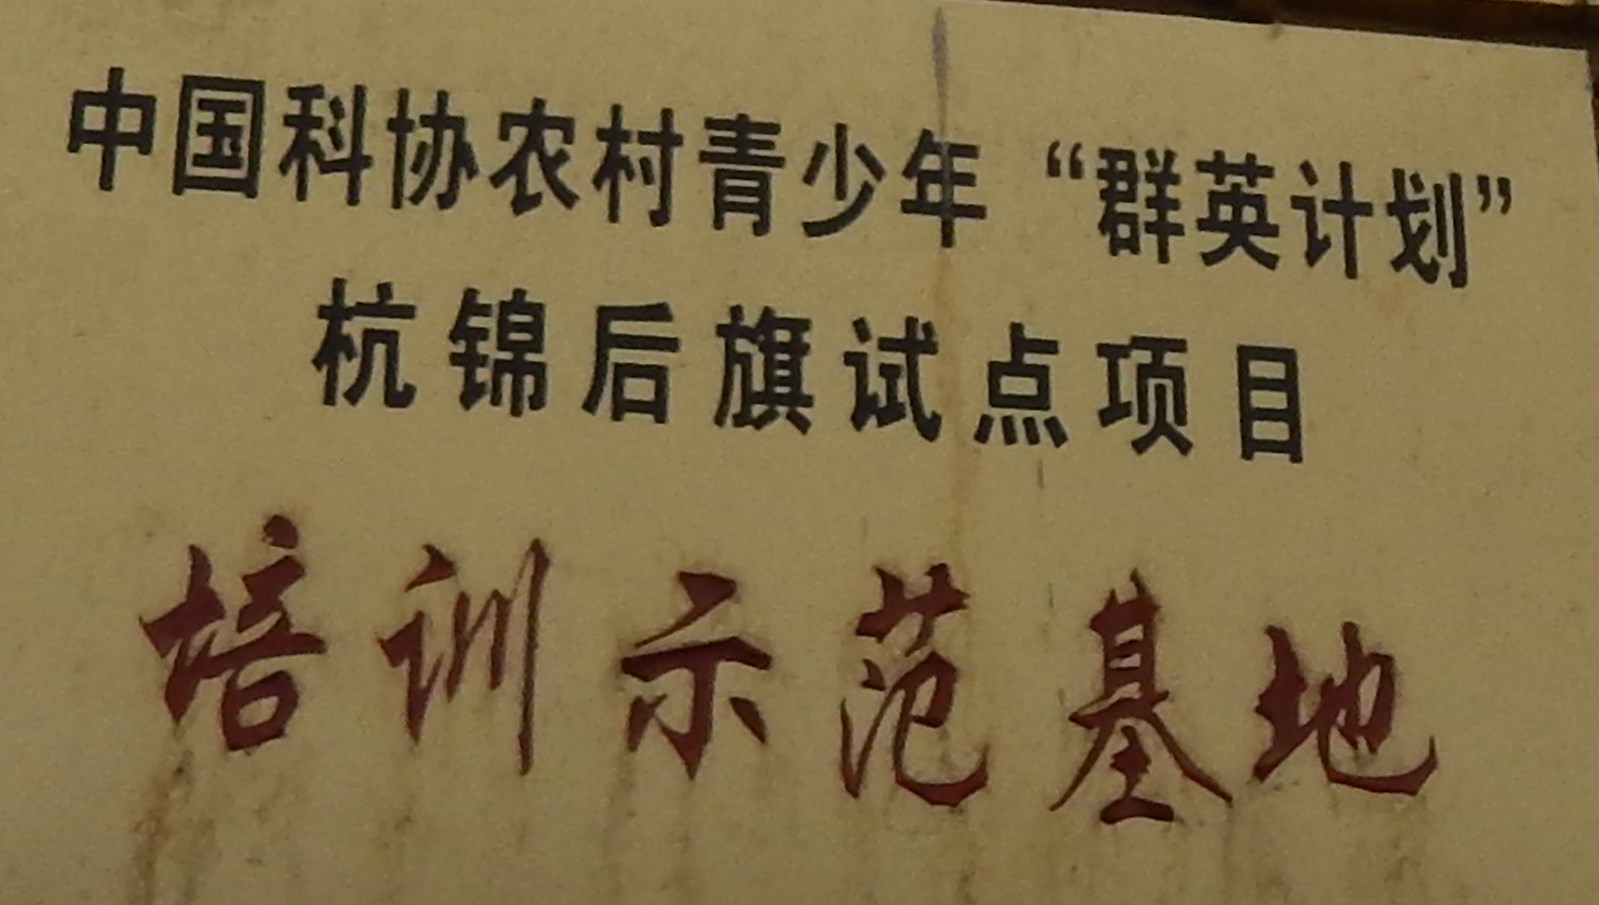 中国科协农村青少年“群英计划”
杭锦后旗试点项目
培训示范基地